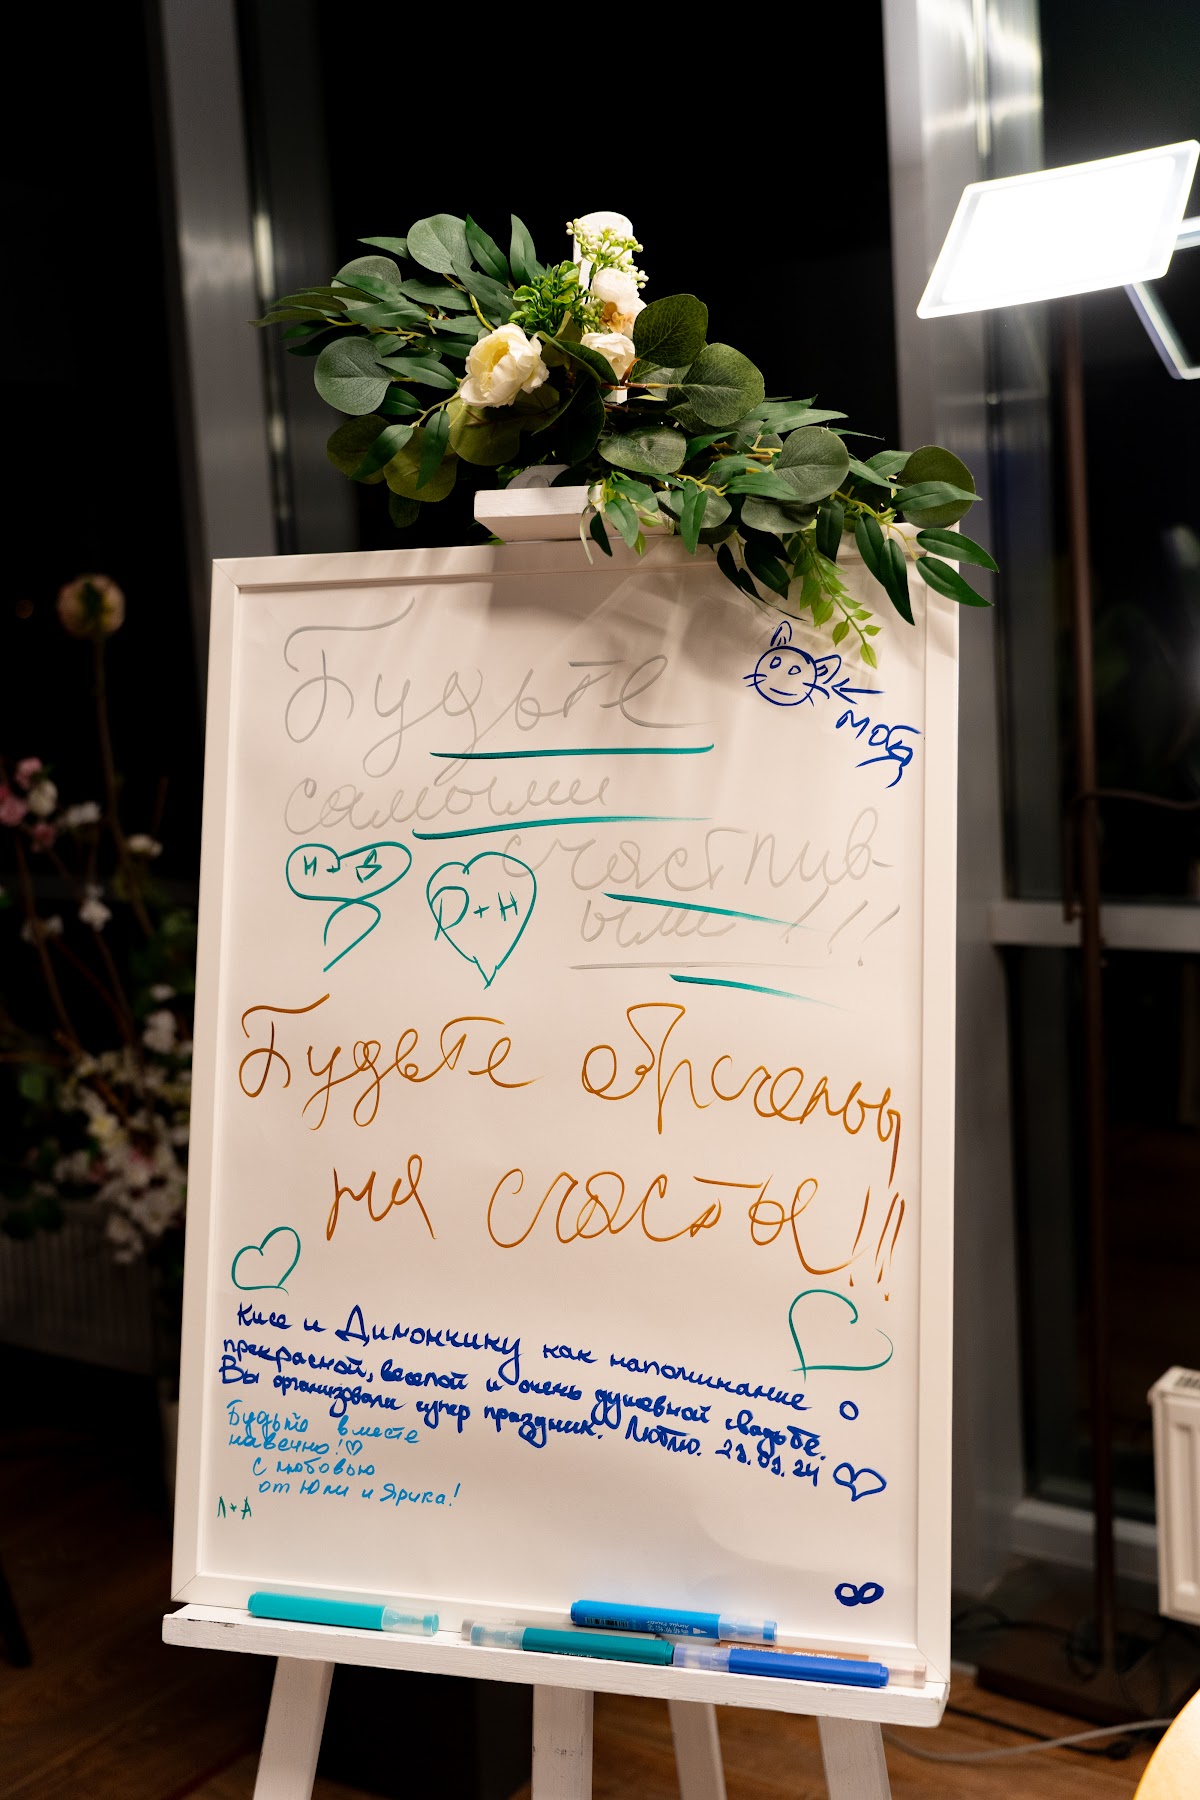 Будьте
самыми
счастлив
ыми!!!
Н + В
D + Н
Будьте обречены
на счастье!!!
Кисе и Димончику как напоминание о
прекрасной, веселой и очень душевной свадьбе.
Вы организовали супер праздник. Люблю. 23.03.24
Будьте вместе
навечно!
с любовью
от Юли и Ярика!
Л + А